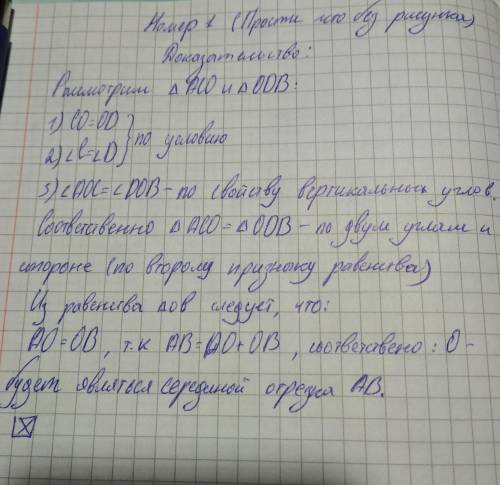 Номер 1 (Прости что без рисунка)
Доказательство:
Рассмотрим △ACO и △ODB:
1) CO=OD
2) ∠C=∠D } по условию
3) ∠AOC=∠DOB – по свойству вертикальных углов.
Соответственно △ACO=△ODB – по двум углам и
стороне (по второму признаку равенства)
Из равенства △ов следует, что:
AO=OB, т.к AB=AO+OB, соответвено: O –
будет являться серединой отрезка AB.